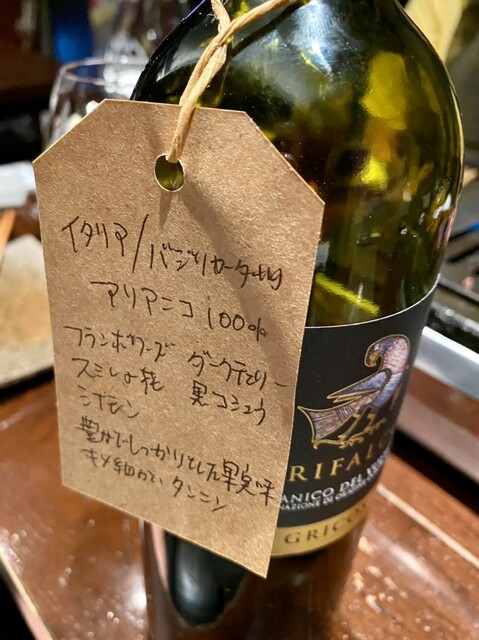 イタリア/バジリカータ州
アリアニコ 100%
フランボワーズ ダークチェリー
スミレの花 黒コショウ
シナモン
豊かでしっかりとした果実味
キメ細かいタンニン
RIFALCO
ANICO DEL VU
NAZIONE DI ORIGINE
GRICO